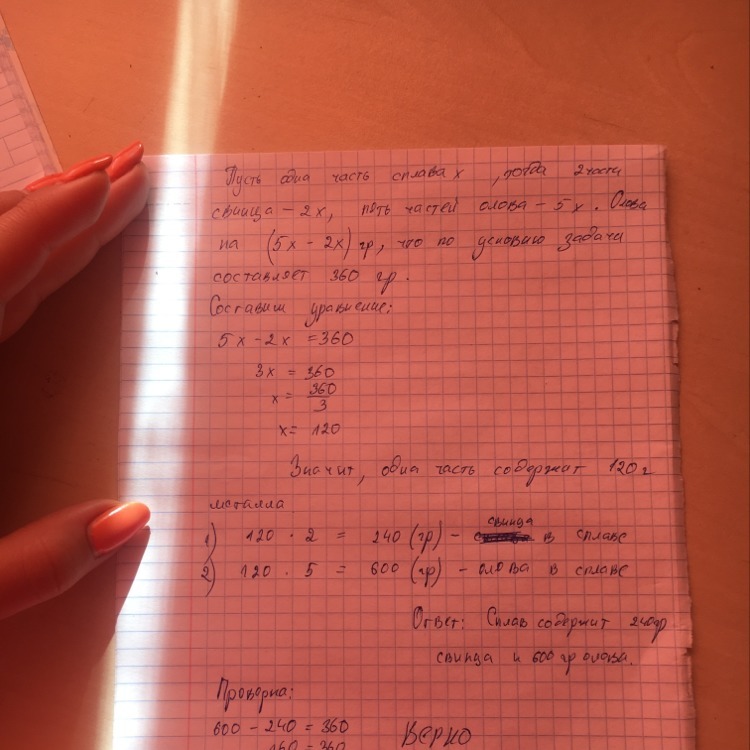 Пусть одна часть сплава x, тогда 2 части
свинца – 2x, пять частей олова – 5x. Олова
на (5x – 2x) гр, что по условию задачи
составляет 360 гр.
Составим уравнение:
5x – 2x = 360
3x = 360
x = 360/3
x = 120
Значит, одна часть содержит 120 г
металла
1) 120 · 2 = 240 (гр) – свинца в сплаве
2) 120 · 5 = 600 (гр) – олова в сплаве
Ответ: Сплав содержит 240гр
свинца и 600 гр олова.
Проверка:
600 – 240 = 360 Верно
360 = 360